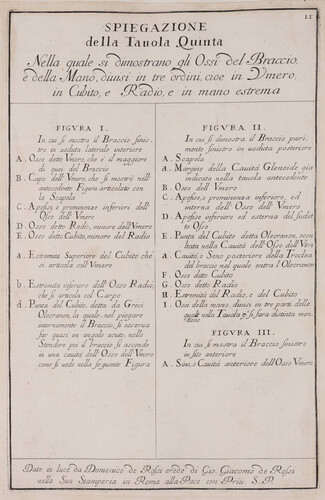 11
SPIEGAZIONE
della Tauola Quinta
Nella quale si dimostrano gli Ossi del Braccio,
e della Mano, diuisi in tre ordini, cioe in Vmero,
in Cubito, e Radio, e in mano estrema
FIGVRA I.
In cui si mostra il Braccio sinis-
tro in ueduta laterale interiore
A. Osso detto Vmero, che è il maggiore
di quei del Braccio
B. Capo dell'Vmero, che si mostrò nell'
antecedente Figura articolato con
la Scapola
C. Apofisi, o prominenze inferiori dell'
Osso dell'Vmero
D. Osso detto Radio, minore dell'Vmero
E. Osso detto Cubito, minore del Radio
a. Estremità Superiore del Cubito che
si articola coll'Vmero
b. Estremità inferiore dell'Osso Radio,
che si articola col Carpo
d. Punta del Cubito, detta da Greci
Olecranon, la quale, nel piegare
internamente il Braccio, si osserua
far quasi un angolo acuto, nello
Stendere poi il braccio si asconde
in una cauità dell'Osso dell'Vmero
come si uede nella seguente Figura
FIGVRA II.
In cui si dimostra il Braccio pari-
mente sinistro in ueduta posteriore
A. Scapola
a. Margine della Cauità Glenoide già
indicata nella tauola antecedente
B. Osso dell'Vmero
C. Apofisi, o prominenza inferiore, ed
interna dell'Osso dell'Vmero
D. Apofisi inferiore ed esterna del sudet-
to Osso
E. Punta del Cubito detta Olecranon, occul-
tata nella Cauità dell'Osso dell'Vmero
a. Cauità, o Seno posteriore della Troclea
del braccio nel quale entra l'Olecranon
F. Osso detto Cubito
G. Osso detto Radio
H. Estremità del Radio, e del Cubito
I. Ossi della mano diuisi in tre parti delle
quali nella Tauola si farà distinta men-
tione
FIGVRA III.
In cui si mostra il Braccio sinistro
in sito anteriore
A. Sino, o Cauità anteriore dell'Osso Vmero
Date in luce da Domenico de Rossi erede di Gio. Giacomo de Ros-
si nella Sua Stamperia in Roma alla Pace con Priu. S. P.